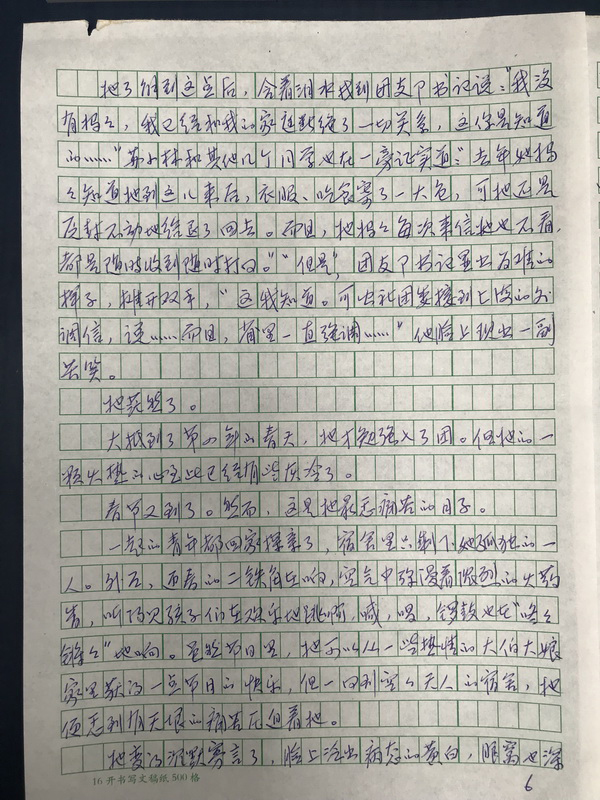 她了解到这点后，含着泪水找到团支部书记说：“我没
有妈妈，我已经和我的家庭断绝了一切关系，这你是知道
的……”苏小林和其他几个同学也在一旁证实道：“去年她妈
妈知道她到这儿来后，衣服、吃食寄了一大包，可她还是
原封不动地给退了回去。而且，她妈妈每次来信她也不看，
都是随时收到随时打回。”“但是”，团支部书记露出为难的
样子，摊开双手，“这我知道。可出社团委接到上海的外
调信，说……而且，省里一直强调……”他脸上现出一副
苦笑。
她茫然了。
大抵到了第四年的春天，她才勉强入了团。但她的一
颗火热的心至此已经有些灰冷了。
春节又到了。然而，这是她最感痛苦的日子。
一起的青年都回家探亲了，宿舍里只剩下她孤独的一
人。外面，两旁的二铁角在响，空气中弥漫着浓烈的火药
香，听得见孩子们在欢乐地跳啊，喊，唱，锣鼓也在“咚咚
锵锵”地响。虽然节日里，她可以从一些热情的大伯大娘
家里获得一点节日的快乐，但一回到空空无人的宿舍，她
便感到有无限的痛苦在迫着她。
她变得沉默寡言了，脸上泛出病态的黄白，眼窝也深
16开书写文稿纸500格
6